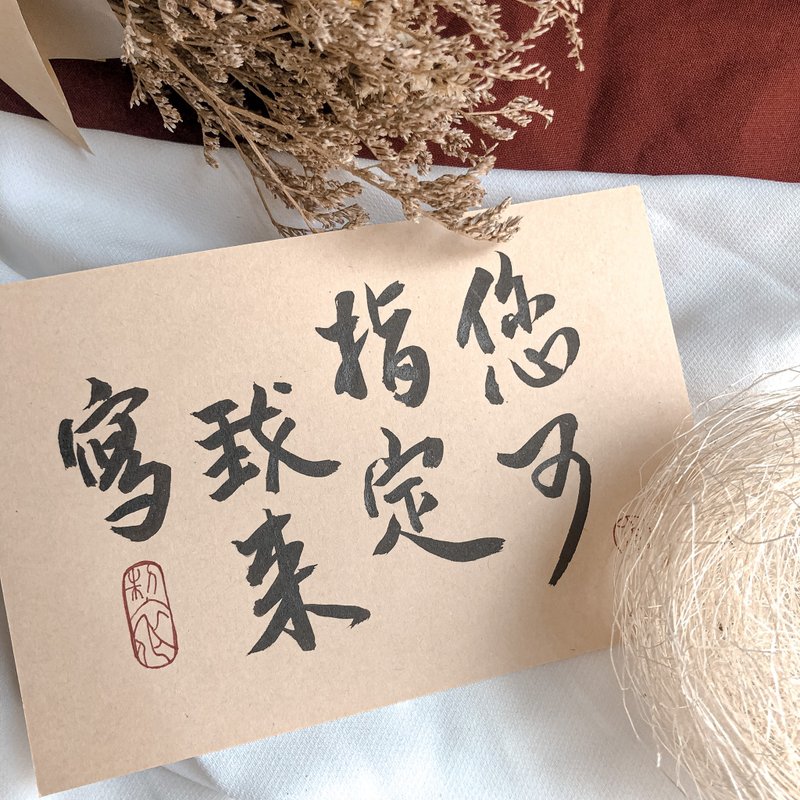 您可
指定
我来
寫